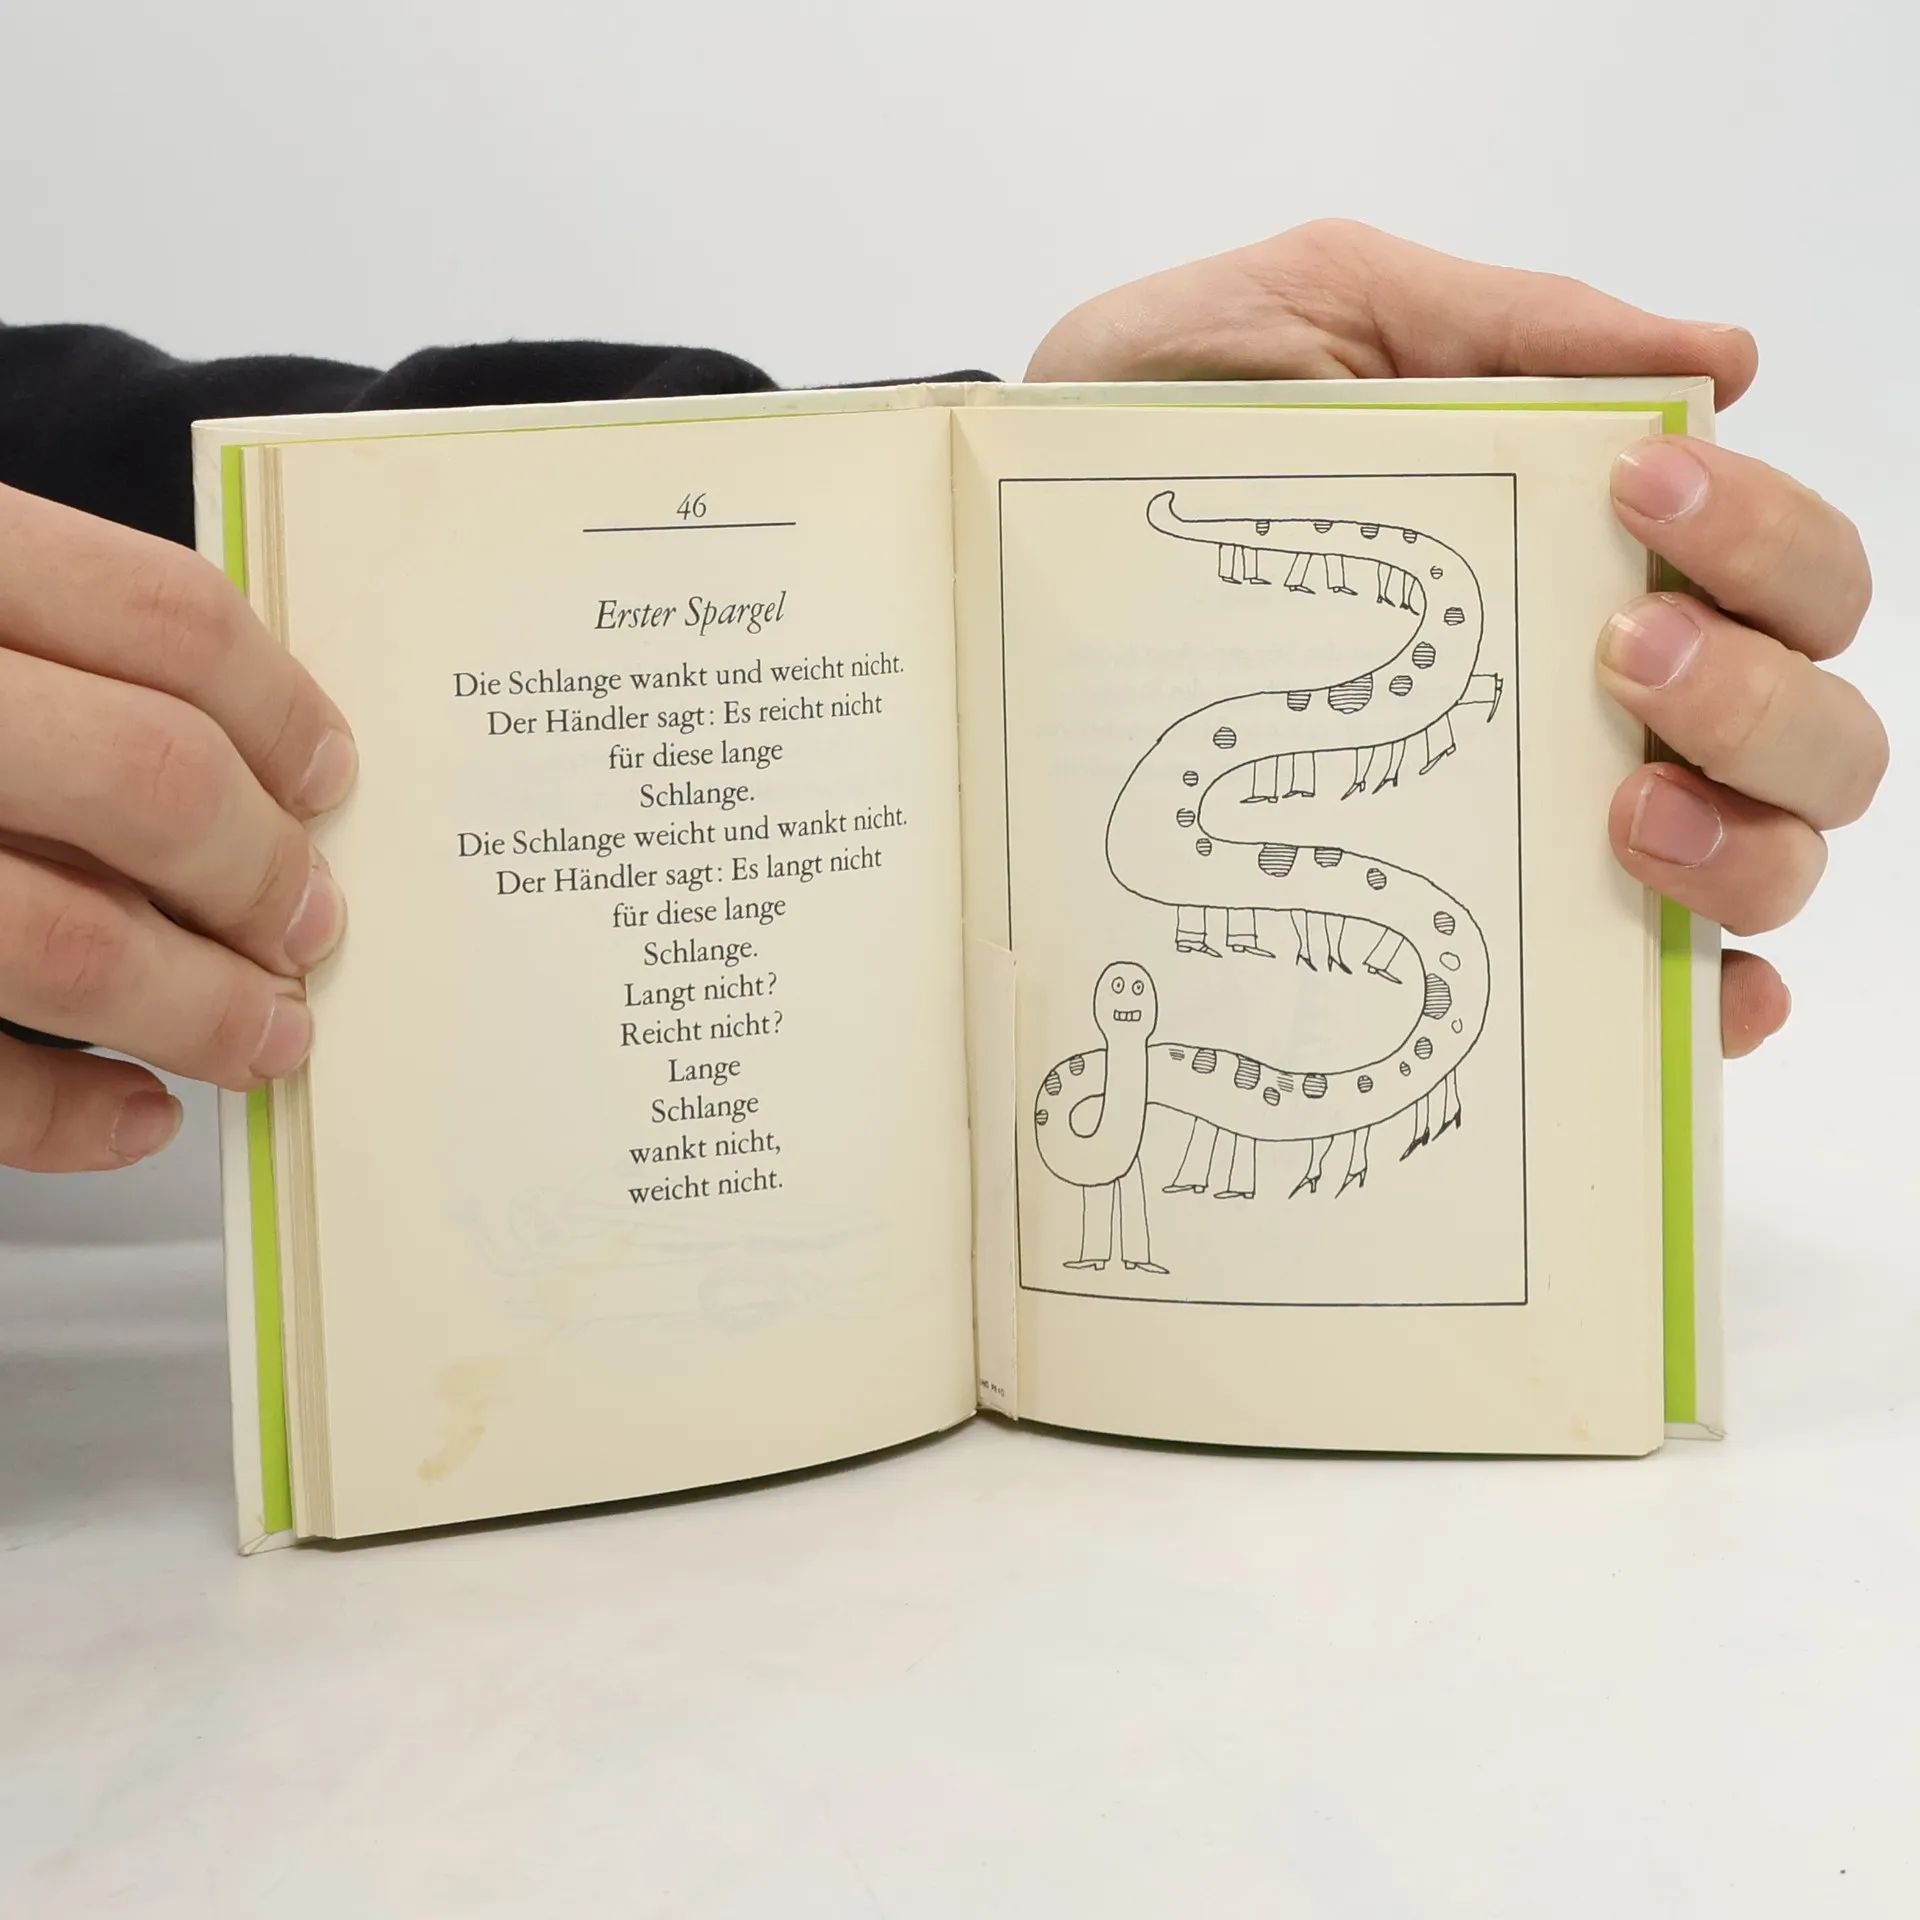 46
Erster Spargel
Die Schlange wankt und weicht nicht.
Der Händler sagt: Es reicht nicht
für diese lange
Schlange.
Die Schlange weicht und wankt nicht.
Der Händler sagt: Es langt nicht
für diese lange
Schlange.
Langt nicht?
Reicht nicht?
Lange
Schlange
wankt nicht,
weicht nicht.